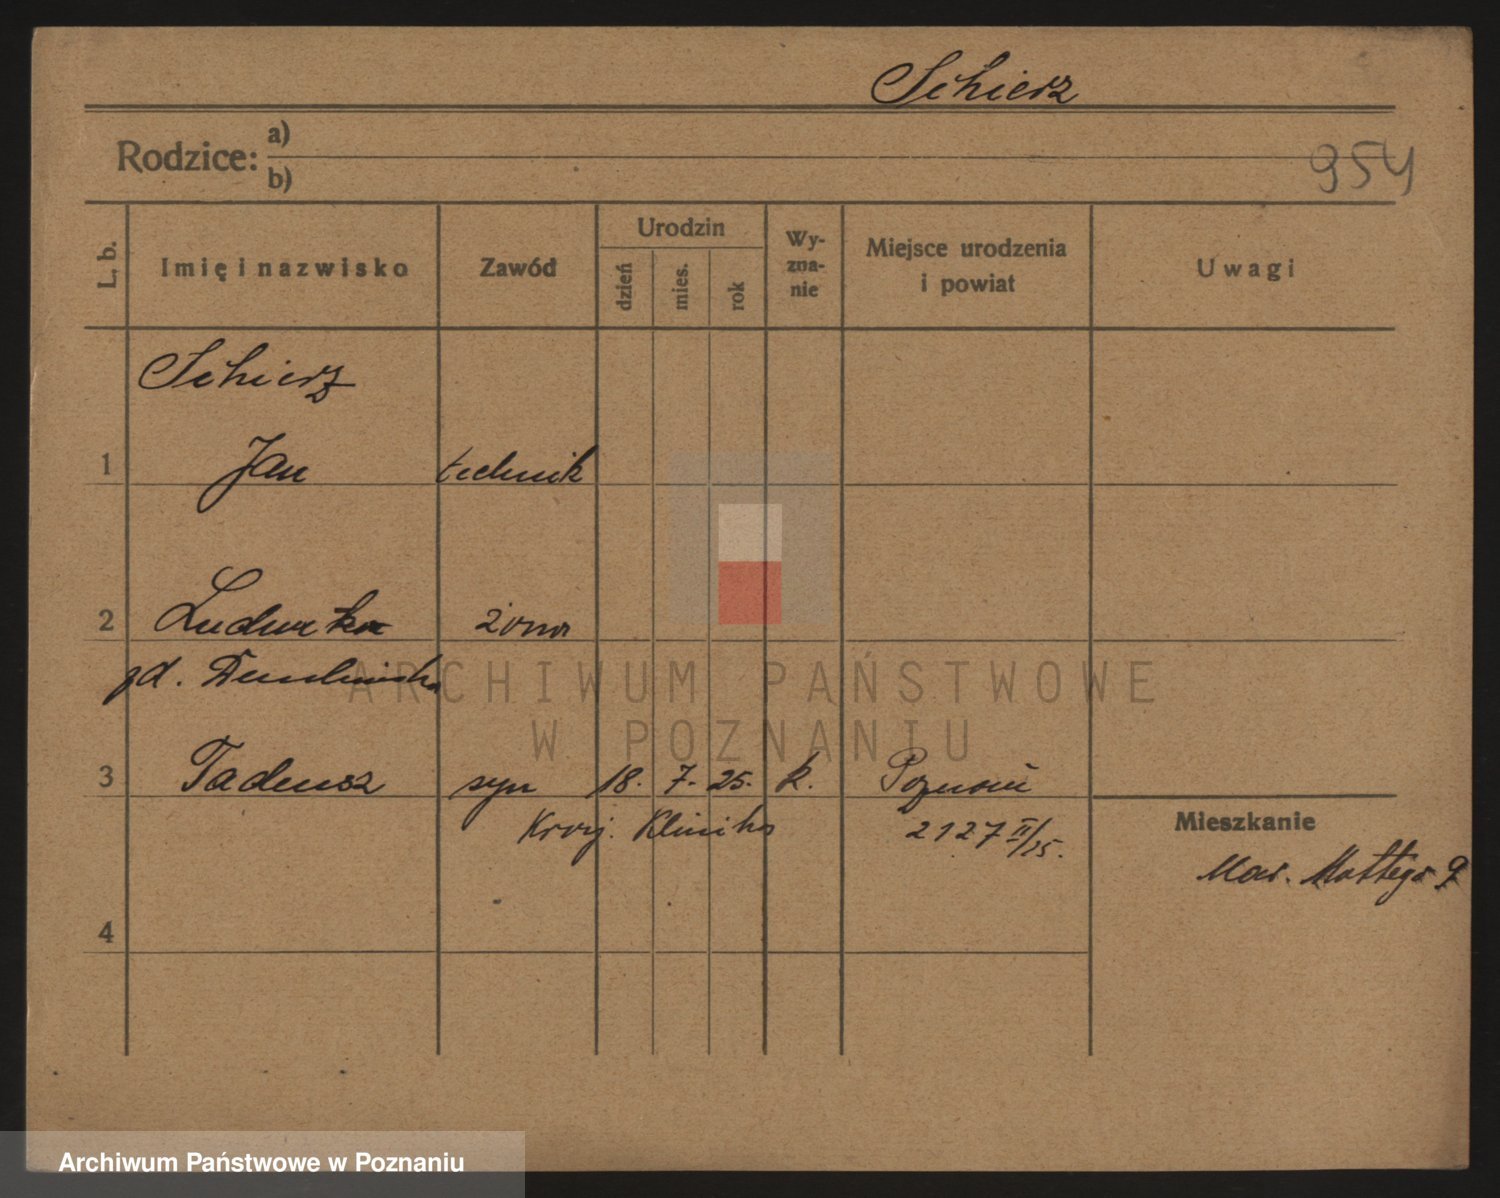 Schierz
Rodzice: a)
b)
954
L. b.
Imię i nazwisko
Zawód
Urodzin
dzień
mies.
rok
Wy-
zna-
nie
Miejsce urodzenia
i powiat
Uwagi
Schierz
1 Jan technik
2 Ludwika żona
zd.
3 Tadeusz syn 18. 7. 25. k. Poznań
Kraj. Klinika 2127 II/25.
Mieszkanie
Mar. Mottego 9
4
ARCHIWUM PAŃSTWOWE
W POZNANIU
Archiwum Państwowe w Poznaniu